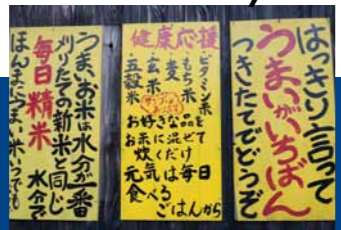 はっきり言って
うまいがいちばん
つきたてでどうぞ
健康応援
ビタミン米
もち米
麦
玄米
五穀米
お好きな品を
お米に混ぜて
炊くだけ
元気は毎日
食べる
ごはんから
うまいお米は水分が一番
刈りたての新米と同じ
毎日精米
水分で
ほんまにうまい米いつでも